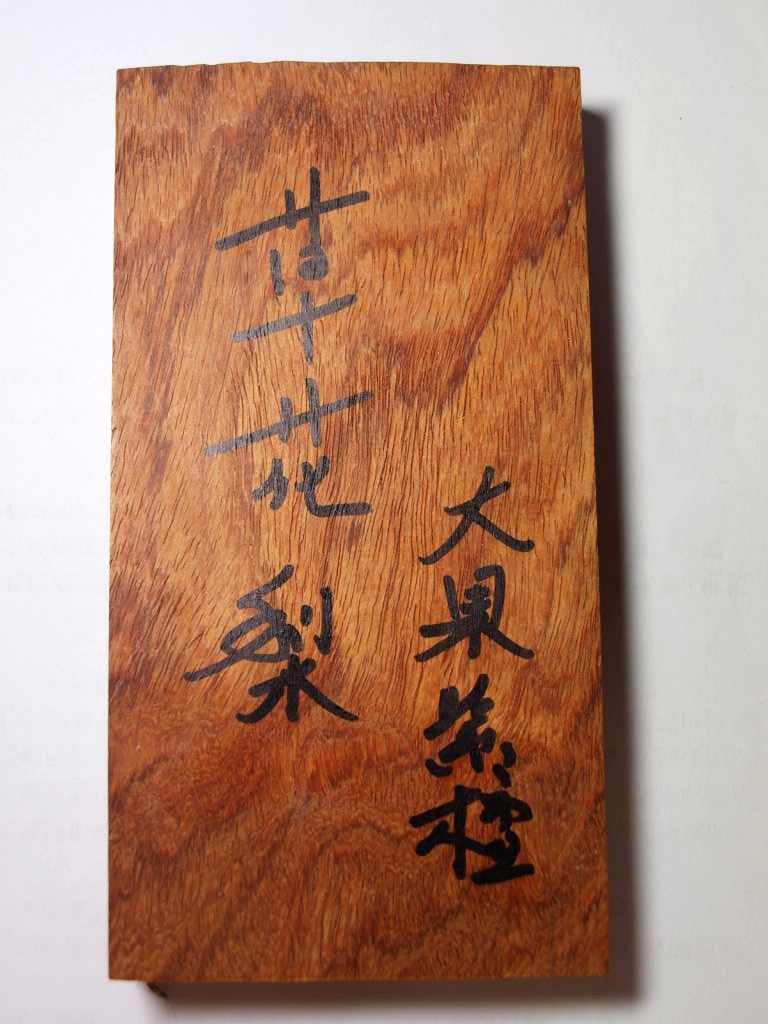 草花梨
大果紫檀